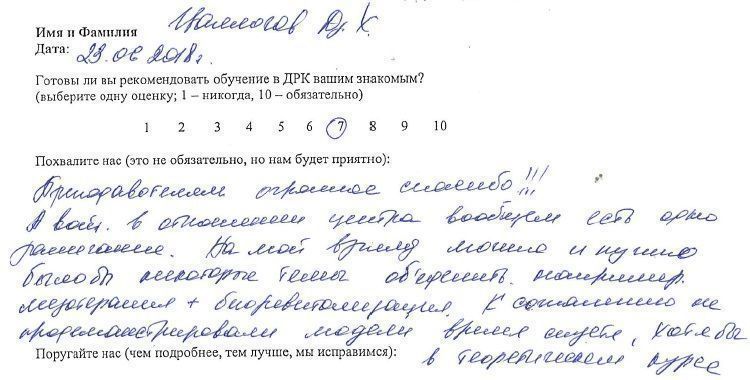 Имя и Фамилия Др. Х.
Дата: 23.06 2018г.
Готовы ли вы рекомендовать обучение в ДРК вашим знакомым?
(выберите одну оценку; 1 – никогда, 10 – обязательно)
1 2 3 4 5 6 7 8 9 10
Похвалите нас (это не обязательно, но нам будет приятно):
Преподавателям огромное спасибо!!!
А в отношении центра вообщем есть одно
замечание. На мой взгляд можно и нужно
былобы некоторые темы об'еденить. например.
мезотерапия + биоревитализация. К сожалению не
продемонстрировали модели время, хотябы
Поругайте нас (чем подробнее, тем лучше, мы исправимся): в теоретическом курсе